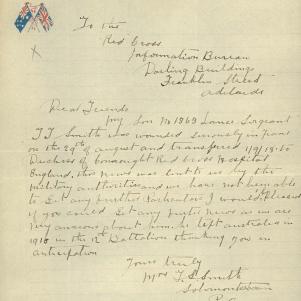 To the
Red Cross
Information Bureau
Darling Buildings
Franklin Street
Adelaide
Dear Friends
my Son No 1969 Lance Sargeant
T.J. Smith was wounded seriously in France
on the 29th of august and transfered 1/9/18 to
Duchess of Connaught Red Cross Hospital
England, this news was sent to us by the
military authorities and we have not been able
to get any further I would be pleased
if you could get any further news as we are
very anxious about him, he left australia in
1916 in the 12th Battalion thanking you in
anticipation
Yours truly
Mrs T.S. Smith
Solomontown